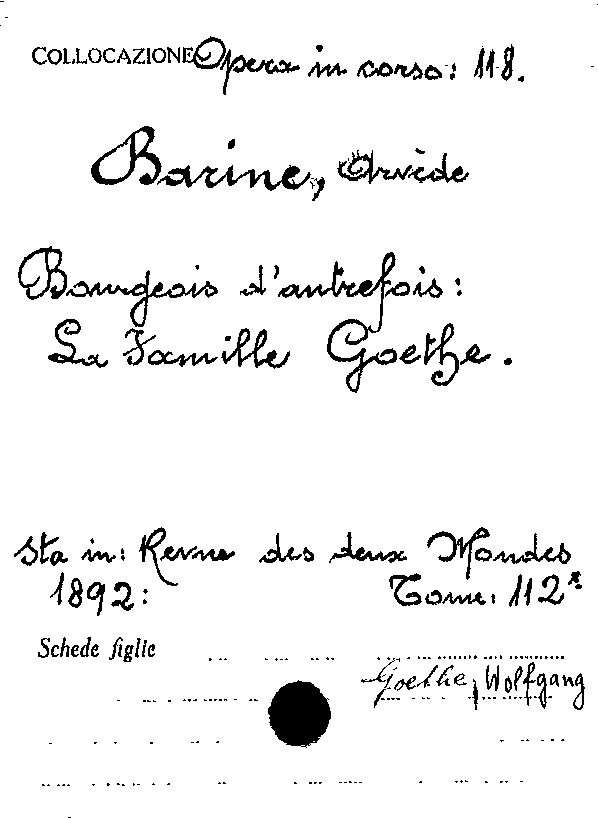 COLLOCAZIONE Opera in corso: 118.
Barine, Arvède
Bourgeois d'autrefois:
La Famille Goethe.
Sta in: Revue des deux Mondes
1892: Tome: 112°
Schede figlie
Goethe, Wolfgang